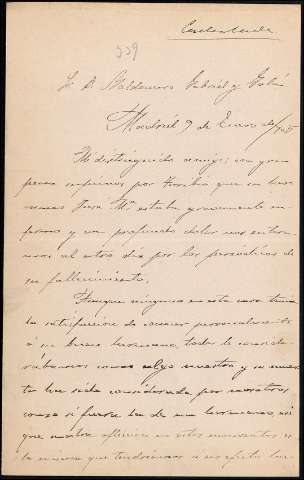 Contestada
339
Sr. D. Baldomero Gabriel y Galán
Madrid 9 de Enero de 1905
Mi distinguido amigo: con gran
pena supimos por que su her-
mano José Mª estaba gravemente en-
fermo y con profundo dolor nos entera-
mos al otro día por los periódicos de
su fallecimiento.
Aunque ninguno en esta casa tenía
la satisfacción de conocer personalmente
á su buen hermano, todos le conside-
rábamos como algo nuestro y su muer-
te ha sido considerada por nosotros
como si fuera la de un hermano, así
que nuestra aflicción en estos momentos es
la misma que tendríamos si